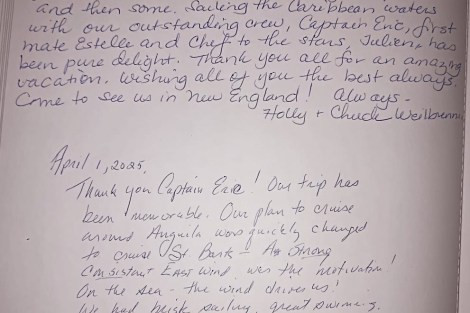 and then some. Sailing the Caribbean waters
with our outstanding crew, Captain Eric, first
mate Estelle and Chef to the stars, Julien, has
been pure delight. Thank you all for an amazing
vacation. Wishing all of you the best always.
Come to see us in New England! Always -
Holly + Chuck
April 1, 2025,
Thank you Captain Eric! Our trip has
been memorable. Our plan to cruise
around Anguila was quickly changed
to cruise St Bart - A Strong
Consistant East wind was the motivation!
On the sea - the wind drives us!
We had brisk sailing, great swimming,